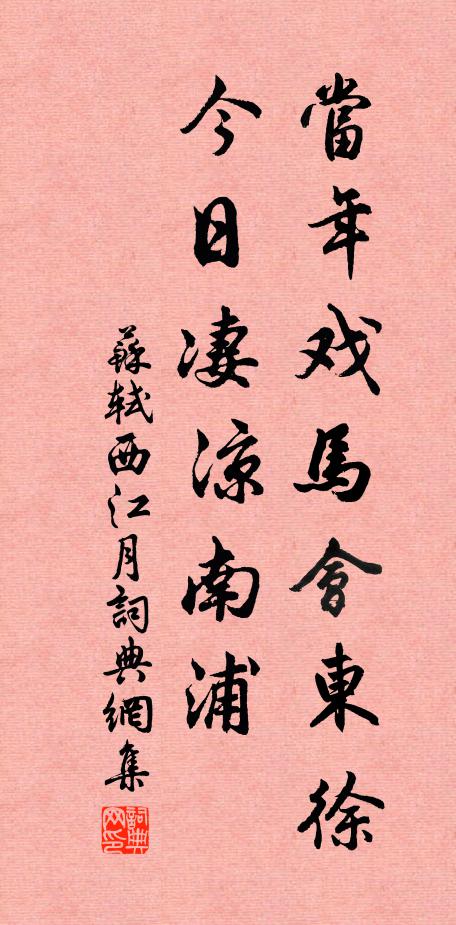 當年戏馬會東徐
今日凄涼南浦
蘇軾西江月詞典網集
詞典网印